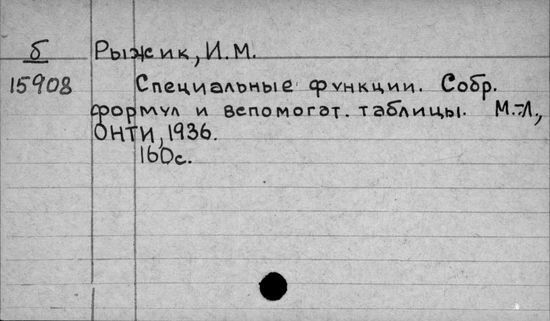 б Рыжик, И.М.
15908 Специальные функции. Собр.
формул и вспомогат. таблицы. М.-Л.,
ОНТИ, 1936.
160с.